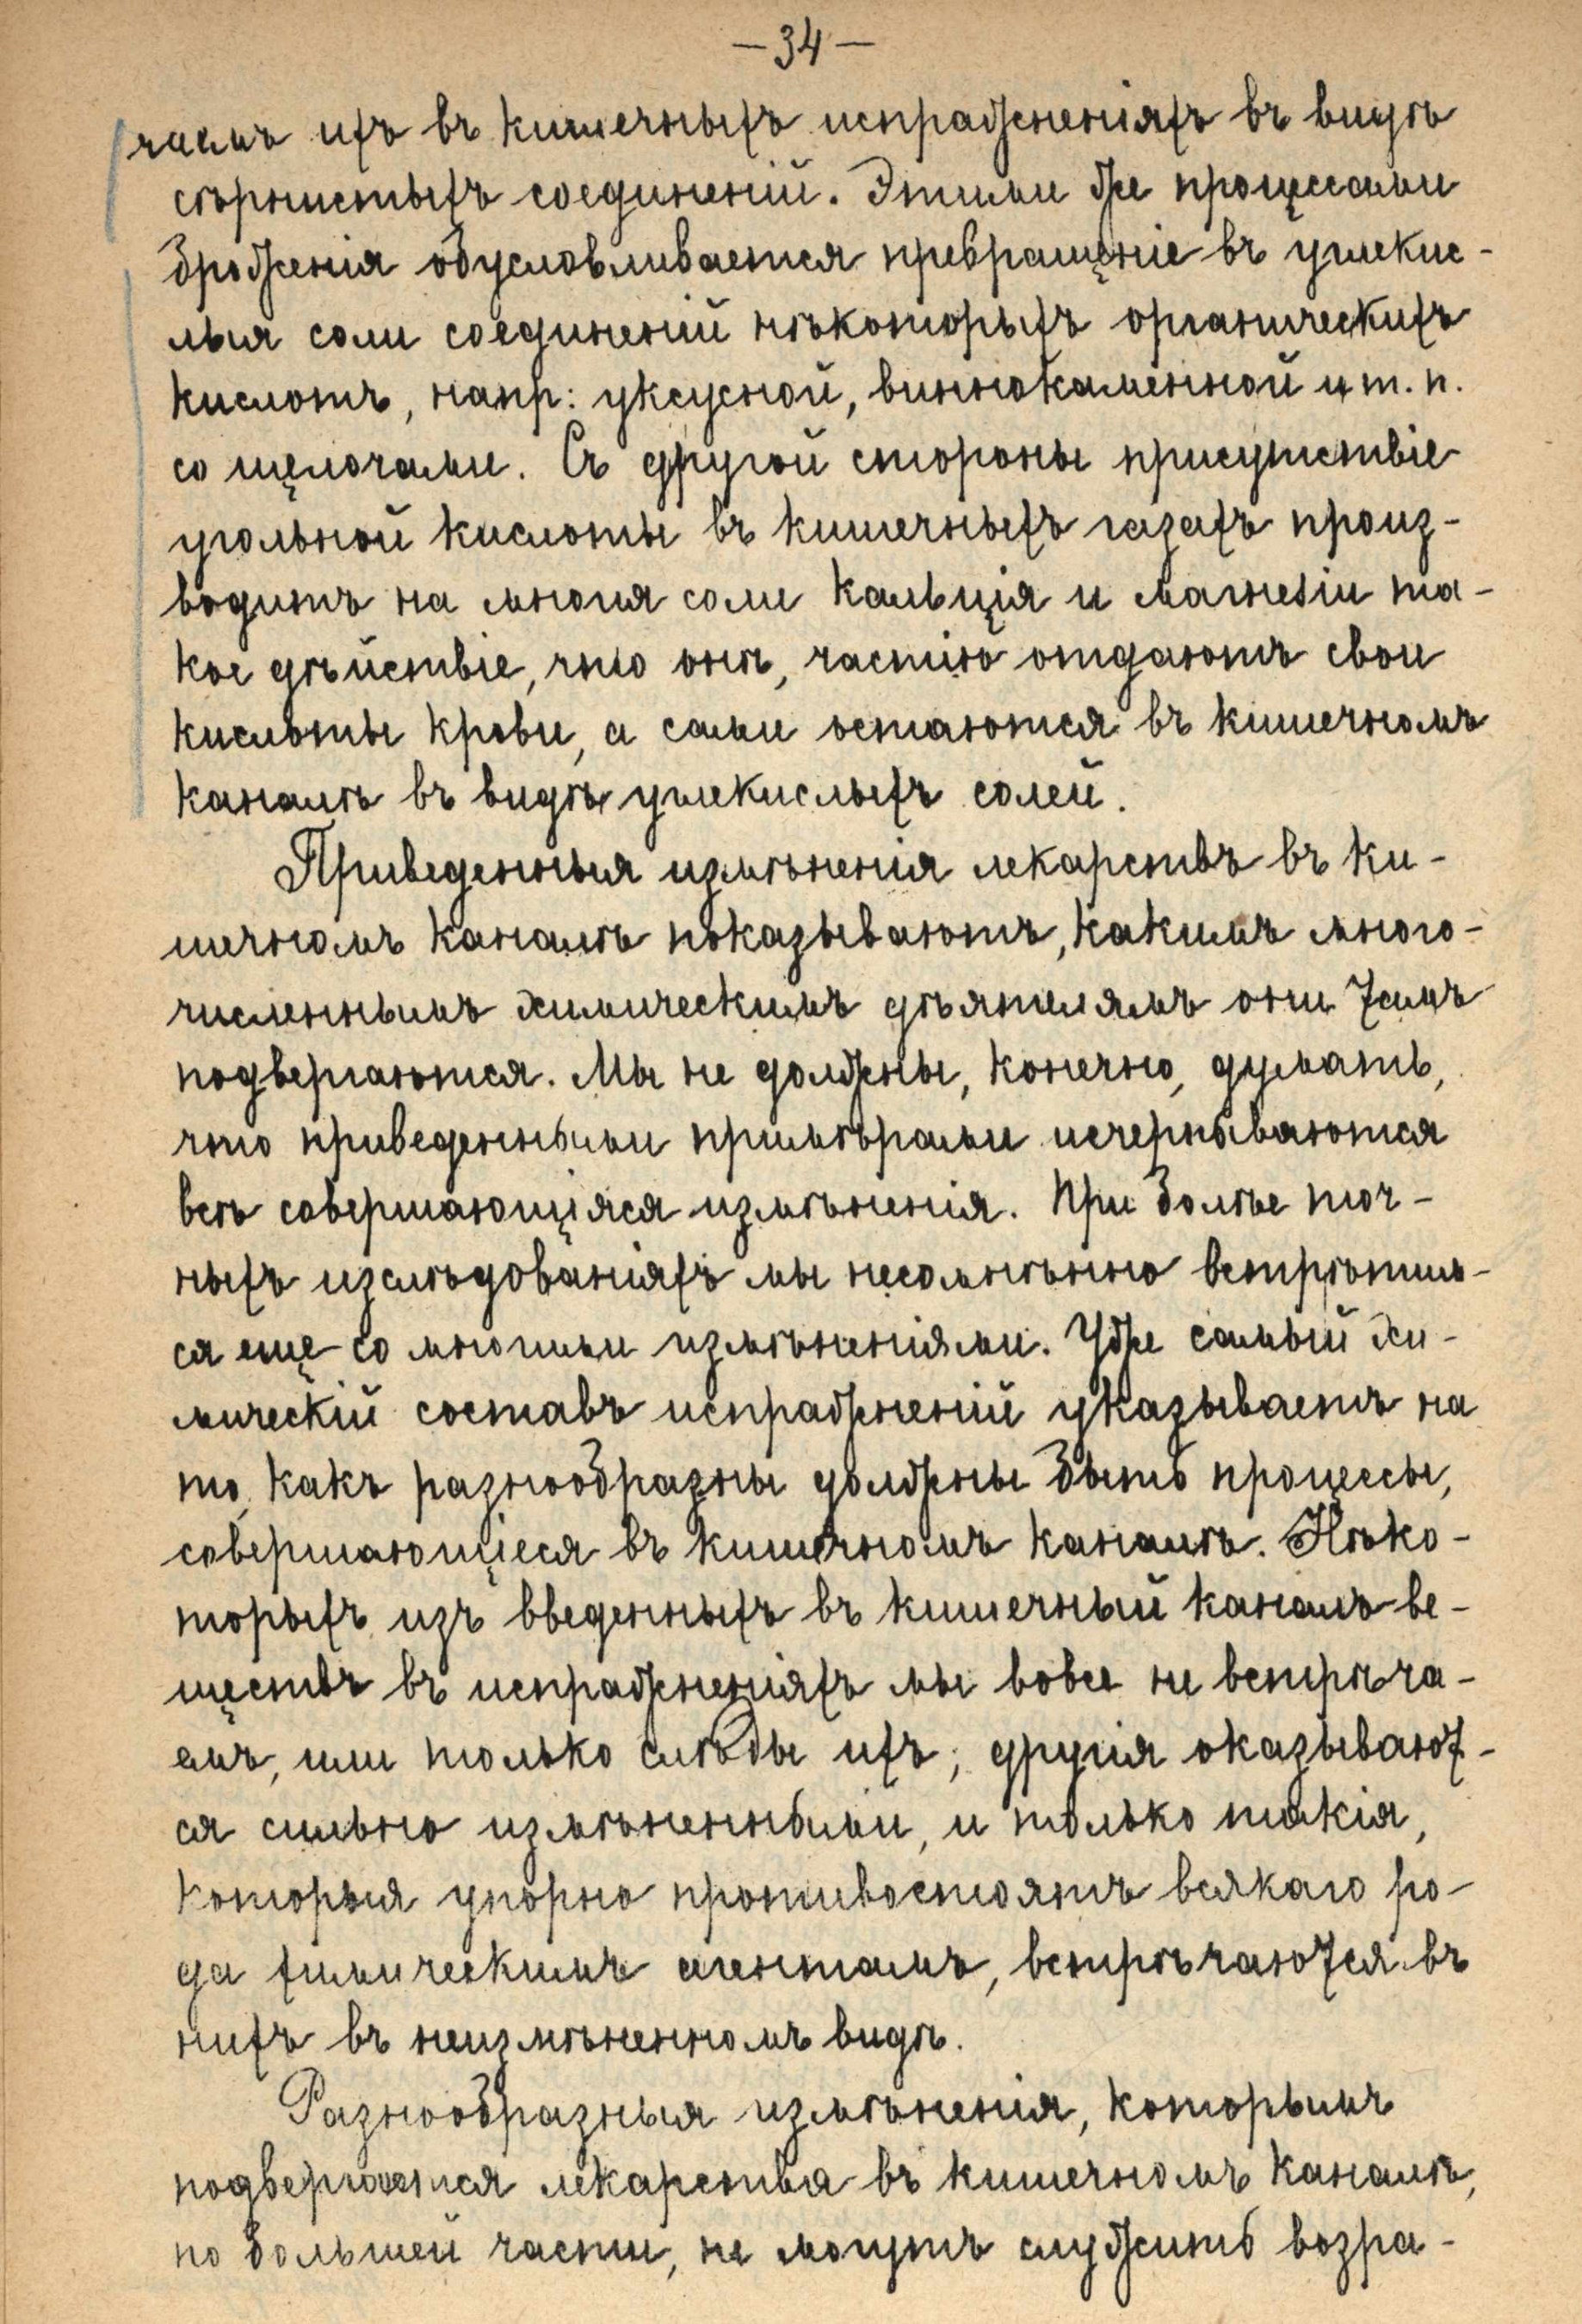 — 34 —
чаемъ ихъ въ кишечныхъ испражненіяхъ въ видѣ
сѣрнистыхъ соединеній. Этими же процессами
броженія обусловливается превращеніе въ углекис-
лыя соли соединеній нѣкоторыхъ органическихъ
кислотъ, напр: уксусной, виннокаменной и т. п.
со щелочами. Съ другой стороны присутствіе
угольной кислоты въ кишечныхъ газахъ произ-
водитъ на многія соли кальція и магнезіи та-
кое дѣйствіе, что онѣ, частію отдаютъ свои
кислоты крови, а сами остаются въ кишечномъ
каналѣ въ видѣ углекислыхъ солей.
Приведенныя измѣненія лекарствъ въ ки-
шечномъ каналѣ показываютъ, какимъ много-
численнымъ химическимъ дѣятелямъ они тамъ
подвергаются. Мы не должны, конечно, думать,
что приведенными примѣрами исчерпываются
всѣ совершающіяся измѣненія. При болѣе точ-
ныхъ изслѣдованіяхъ мы несомнѣнно встрѣтим-
ся еще со многими измѣненіями. Уже самый хи-
мическій составъ испражненій указываетъ на
то, какъ разнообразны должны быть процессы,
совершающіеся въ кишечномъ каналѣ. Нѣко-
торыхъ изъ введенныхъ въ кишечный каналъ ве-
ществъ въ испражненіяхъ мы вовсе не встрѣча-
емъ, или только слѣды ихъ; другія оказывают-
ся сильно измѣненными, и только такія,
которыя упорно противостоятъ всякаго ро-
да химическимъ агентамъ, встрѣчаются въ
нихъ въ неизмѣненномъ видѣ.
Разнообразныя измѣненія, которымъ
подвергаются лекарства въ кишечномъ каналѣ,
по большей части, не могутъ служить возра-